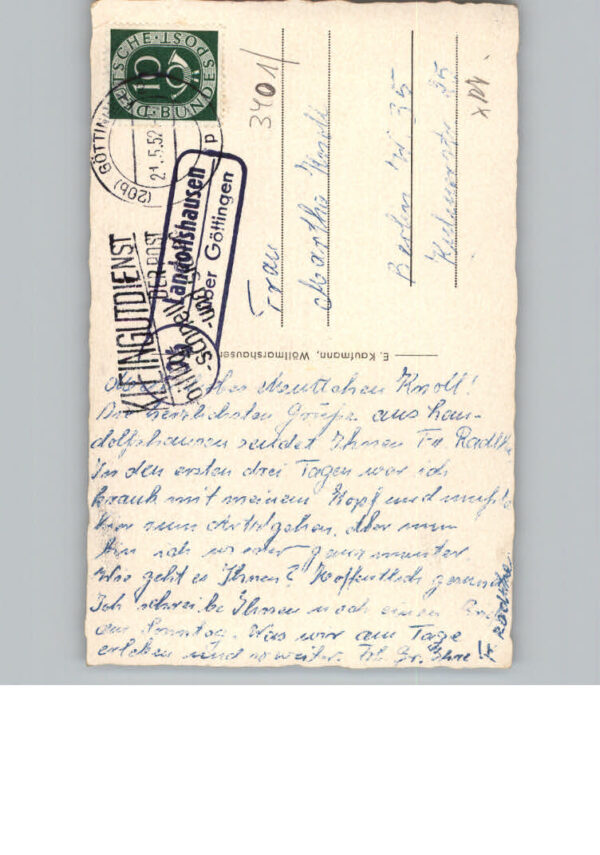 DEUTSCHE BUNDESPOST
10
(20b) GÖTTINGEN
21.5.52
KLEINGUTDIENST
DER POST
Landolfshausen
über Göttingen
3401
Frau
Martha Knoll
Berlin W. 35
35
E. Kaufmann, Wöllmarshausen
liebes Muttchen Knoll!
Die herzlichsten Grüße aus Lan-
dolfshausen sendet Ihnen Fr. Radtke
In den ersten drei Tagen war ich
krank mit meinem Kopf und mußte
hier zum Arzt gehen. Aber nun
bin ich wieder ganz munter
Wie geht es Ihnen? Hoffentlich gesund
Ich schreibe Ihnen noch einen Brief
am Sonntag. Was wir am Tage
erleben und so weiter. Gr. Ihre Fr.
Radtke